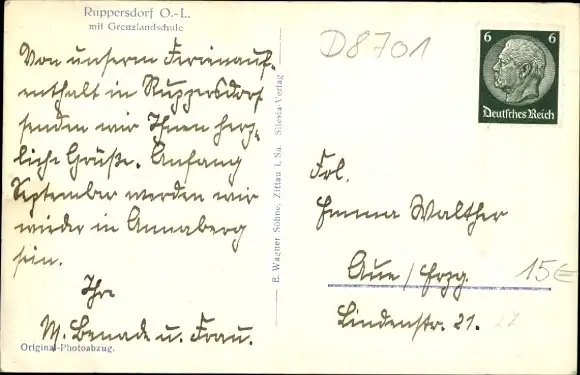 Ruppersdorf O.-L.
mit Grenzlandschule
Von unserem Ferienauf-
enthalt in Ruppersdorf
senden wir Ihnen herz-
liche Grüße. Anfang
September werden wir
wieder in Annaberg
sein.
Ihre
M. Benade u. Frau.
Original-Photoabzug.
E. Wagner Söhne, Zittau i. Sa. Silesia-Verlag
D8701
6 6
Deutsches Reich
Frl.
Emma Walther
Aue/Erzg.
15€
Lindenstr. 21.